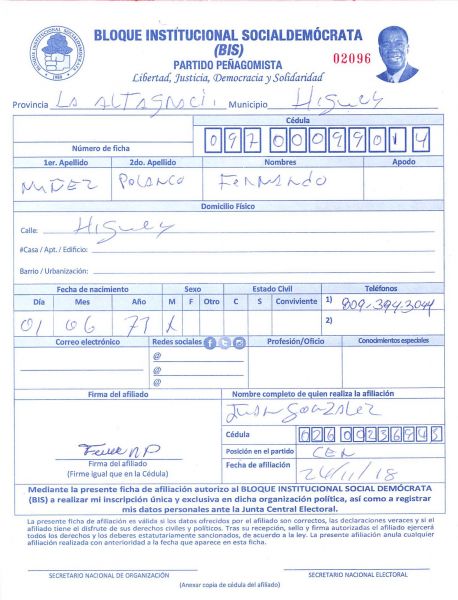 BLOQUE INSTITUCIONAL SOCIALDEMÓCRATA
(BIS)
PARTIDO PEÑAGOMISTA
02096
Libertad, Justicia, Democracia y Solidaridad
Provincia LA ALTAGRACI, Municipio Higuey
Cédula
Número de ficha 097 0009901 4
1er. Apellido 2do. Apellido Nombres Apodo
NUÑEZ POLANCO FERNANDO
Domicilio Físico
Calle: Higuey
#Casa / Apt. / Edificio:
Barrio / Urbanización:
Fecha de nacimiento Sexo Estado Civil Teléfonos
Día Mes Año M F Otro C S Conviviente 1) 809-394-3044
01 06 77 X 2)
Correo electrónico Redes sociales Profesión/Oficio Conocimientos especiales
@
@
@
Firma del afiliado Nombre completo de quien realiza la afiliación
Juan Gonzalez
Cédula 026 0023694 5
Posición en el partido CEN
Firma del afiliado
(Firme igual que en la Cédula)
Fecha de afiliación 24/11/18
Mediante la presente ficha de afiliación autorizo al BLOQUE INSTITUCIONAL SOCIAL DEMÓCRATA
(BIS) a realizar mi inscripción única y exclusiva en dicha organización política, así como a registrar
mis datos personales ante la Junta Central Electoral.
La presente ficha de afiliación es válida si los datos ofrecidos por el afiliado son correctos, las declaraciones veraces y si el
afiliado tiene el disfrute de sus derechos civiles y políticos. Tras su recepción, sello y firma autorizadas el afiliado ejercerá
todos los derechos y los deberes estatutariamente sancionados, de acuerdo a la ley. La presente afiliación anula cualquier
afiliación realizada con anterioridad a la fecha que aparece en esta ficha.
SECRETARIO NACIONAL DE ORGANIZACIÓN SECRETARIO NACIONAL ELECTORAL
(Anexar copia de cédula del afiliado)